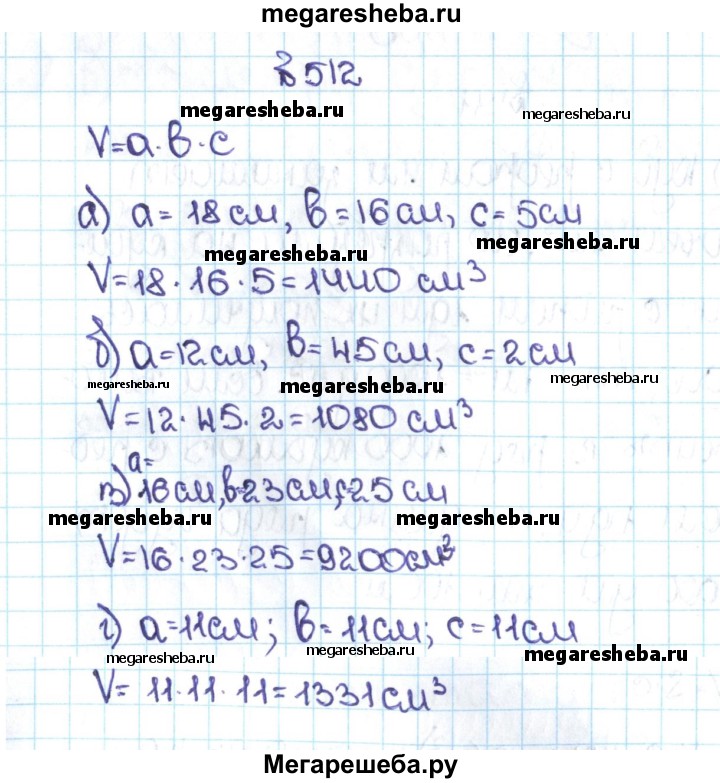 megaresheba.ru
№512
megaresheba.ru megaresheba.ru
V=a·b·c
а) a=18см, b=16см, c=5см
megaresheba.ru
V=18·16·5=1440 см³
б) a=12см, b=45см, c=2см
megaresheba.ru megaresheba.ru megaresheba.ru
V=12·45·2=1080 см³
в) a=16см, b=23см, c=25 см
megaresheba.ru megaresheba.ru
V=16·23·25=9200см³
г) a=11см; b=11см; c=11см
megaresheba.ru megaresheba.ru megaresheba.ru
V= 11·11·11=1331см³
Мегарешеба.ру